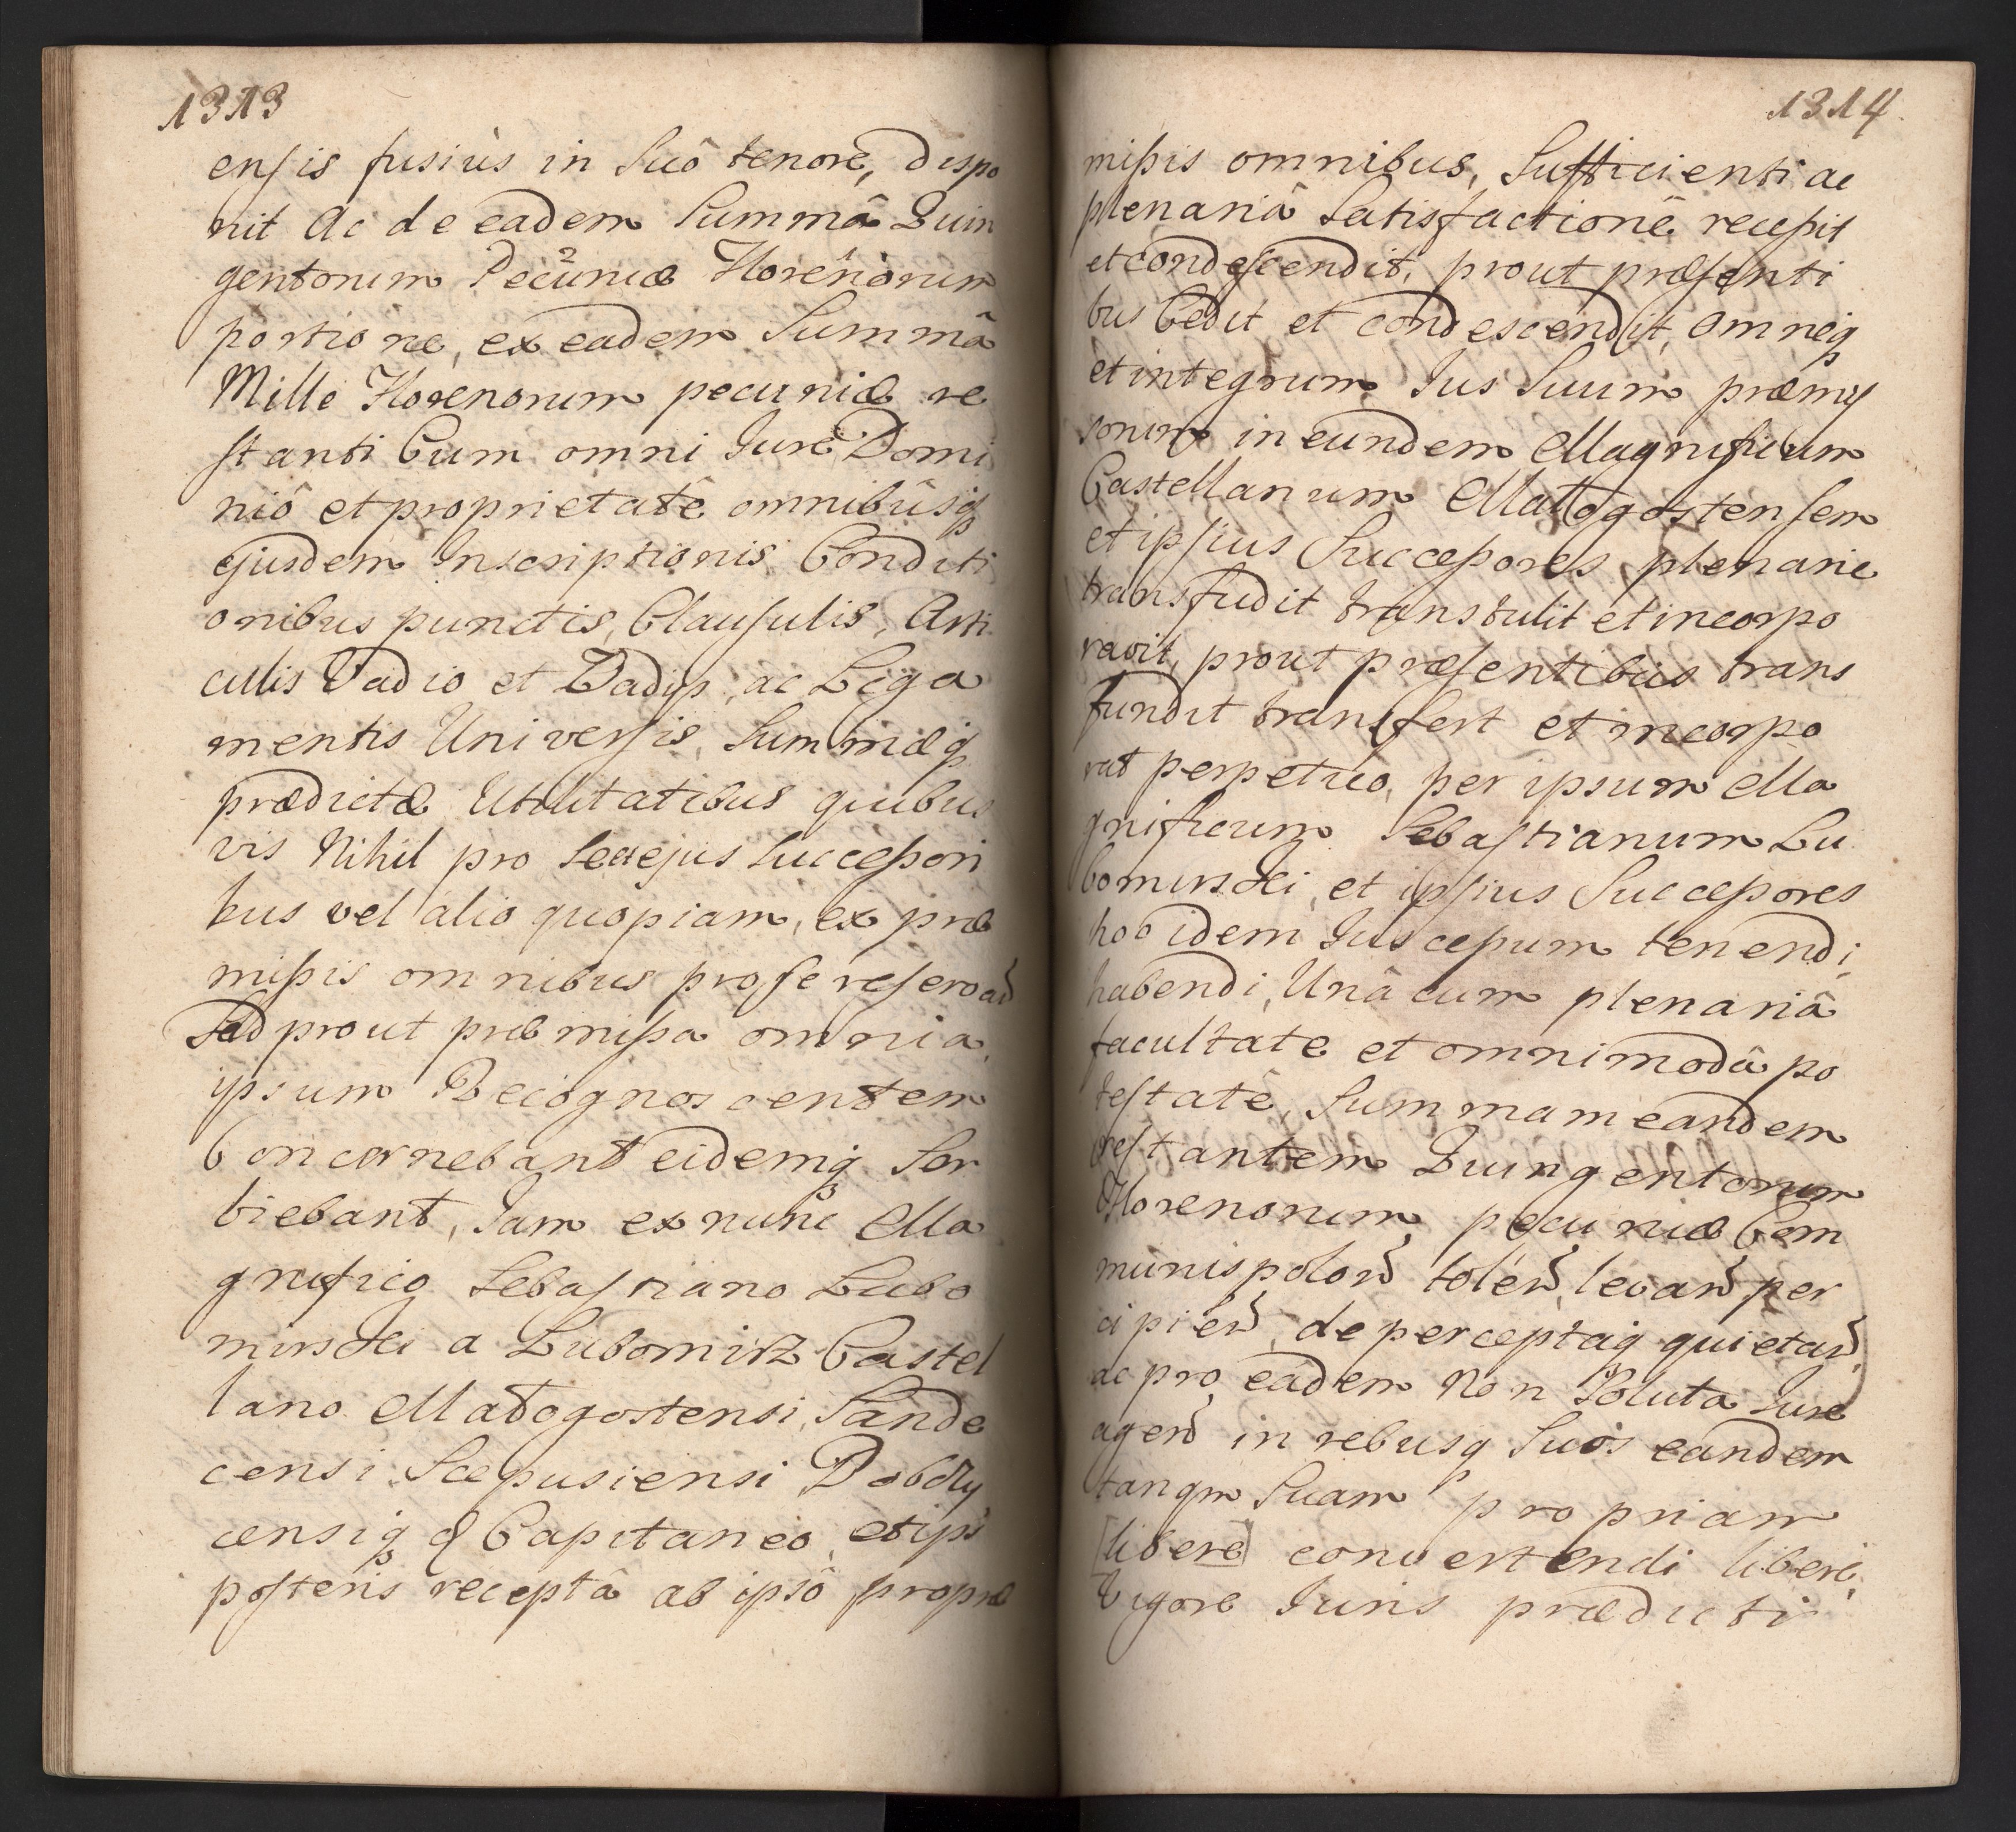 1313
ensis fusiùs in Suô tenorè, dispo
nit ac de eadem Summâ Quin
gentorum Pecuniæ Florenorum
portione, ex eadem Summâ
Mille Florenorum pecuniæ re
stanti Cum omni Jure Domi
niô et proprietatê omnibûsq
ejusdem Inscriptionis Conditi
onibus punctis, Clausulis, Arti
culis Vadio et Vadijs, ac Liga
mentis Universis, Summæq
prædictæ Utilitatibus quibus
vis Nihil pro se et ejus Successori
bus vel alio quopiam, ex præ
missis omnibus pro se reservañ
Sed prout præmissa omnia
ipsum Recognoscentem
Concernebant eidemq Ser
viebant, Jam ex nunc Ma
gnifico Sebastiano Lubo
mirski a Lubomirz Castel
lano Małogostensi, Sande
censi Scepusiensi Dobczy
censiq & Capitaneo, et ips
posteris receptâ ab ipsô pro præ
1314
missis omnibus, Sufficienti ac
plenariâ Satisfactionê recessit
et condescendit, prout præsenti
bus Cedit et condescendit, omneq
et integrum Jus Suum præmis
sorum in eundem Magnificum
Castellanum Małogostensem
et ipsius Successores plenarie
transfudit transtulit et incorpo
ravit, prout præsentibus trans
fundit transfert et incorpo
rat perpetuo, per ipsum Ma
gnificum Sebastianum Lu
bomirski, et ipsius Successores
hoc idem Jus cessum tenendi,
habendi, Unâ cum plenariâ
facultate et omnimodâ po
testatê, Summam eandem
restantem Quingentorum
Florenorum pecuniæ Com
munis poloñ toleñ, levañ per
cipieñ, de perceptaq quietañ,
ac pro eadem Non Soluta Jure
ageñ in rebusq Suos eandem
tanqm Suam propriam
[liberè] convertendi liberè,
Vigore Juris prædicti